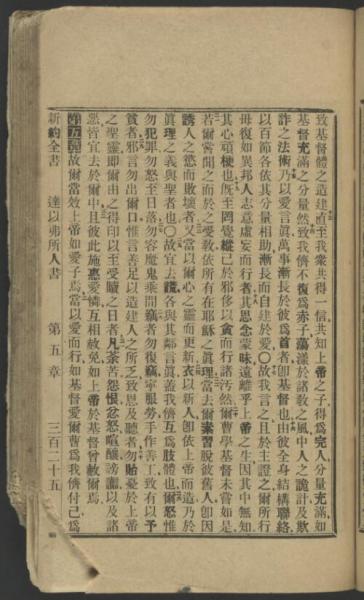 致基督體之造建直至我衆共得一信共知上帝之子得爲完人分量充滿如
基督充滿之分量然致我儕不復爲赤子蕩漾於諸敎之風中人之詭計及欺
詐之法術乃以愛言眞萬事漸長於彼爲首者卽基督也由彼全身結構聯絡
以百節各依其分量相助漸長而自建於愛〇故我言之且於主證之爾所行
毋復如異邦人志意虛妄而行者其思念蒙昧遠離乎上帝之生因其中無知
其心頑梗也旣至罔覺縱己於邪侈以貪而行諸汚然爾曹學基督未嘗如是
若爾嘗聞之而於之受敎依所有在耶穌之眞理當去爾素習脫彼舊人卽因
誘人之慾而敗壞者又當以爾心之靈而更新衣以新人卽依上帝而造乃於
眞理之義與聖者也〇故宜去謊各與其鄰言眞蓋我儕互爲肢體也爾怒惟
勿犯罪勿怒至日落勿容魔鬼乘間竊者勿復竊寧服勞手作善工致有以予
貧者邪言勿出爾口惟言善足以造建人之所乏致恩及聽者勿貽憂於上帝
之聖靈卽爾由之得印以至受贖之日者凡荼苦怨恨忿怒喧謗讟以及諸
惡皆宜去於爾中且彼此施惠愛憐互相赦免如上帝於基督曾赦爾焉
第五章故爾當效上帝如愛子焉當以愛而行如基督愛爾曹爲我儕付己爲
新約全書 達以弗所人書 第五章 三百二十五